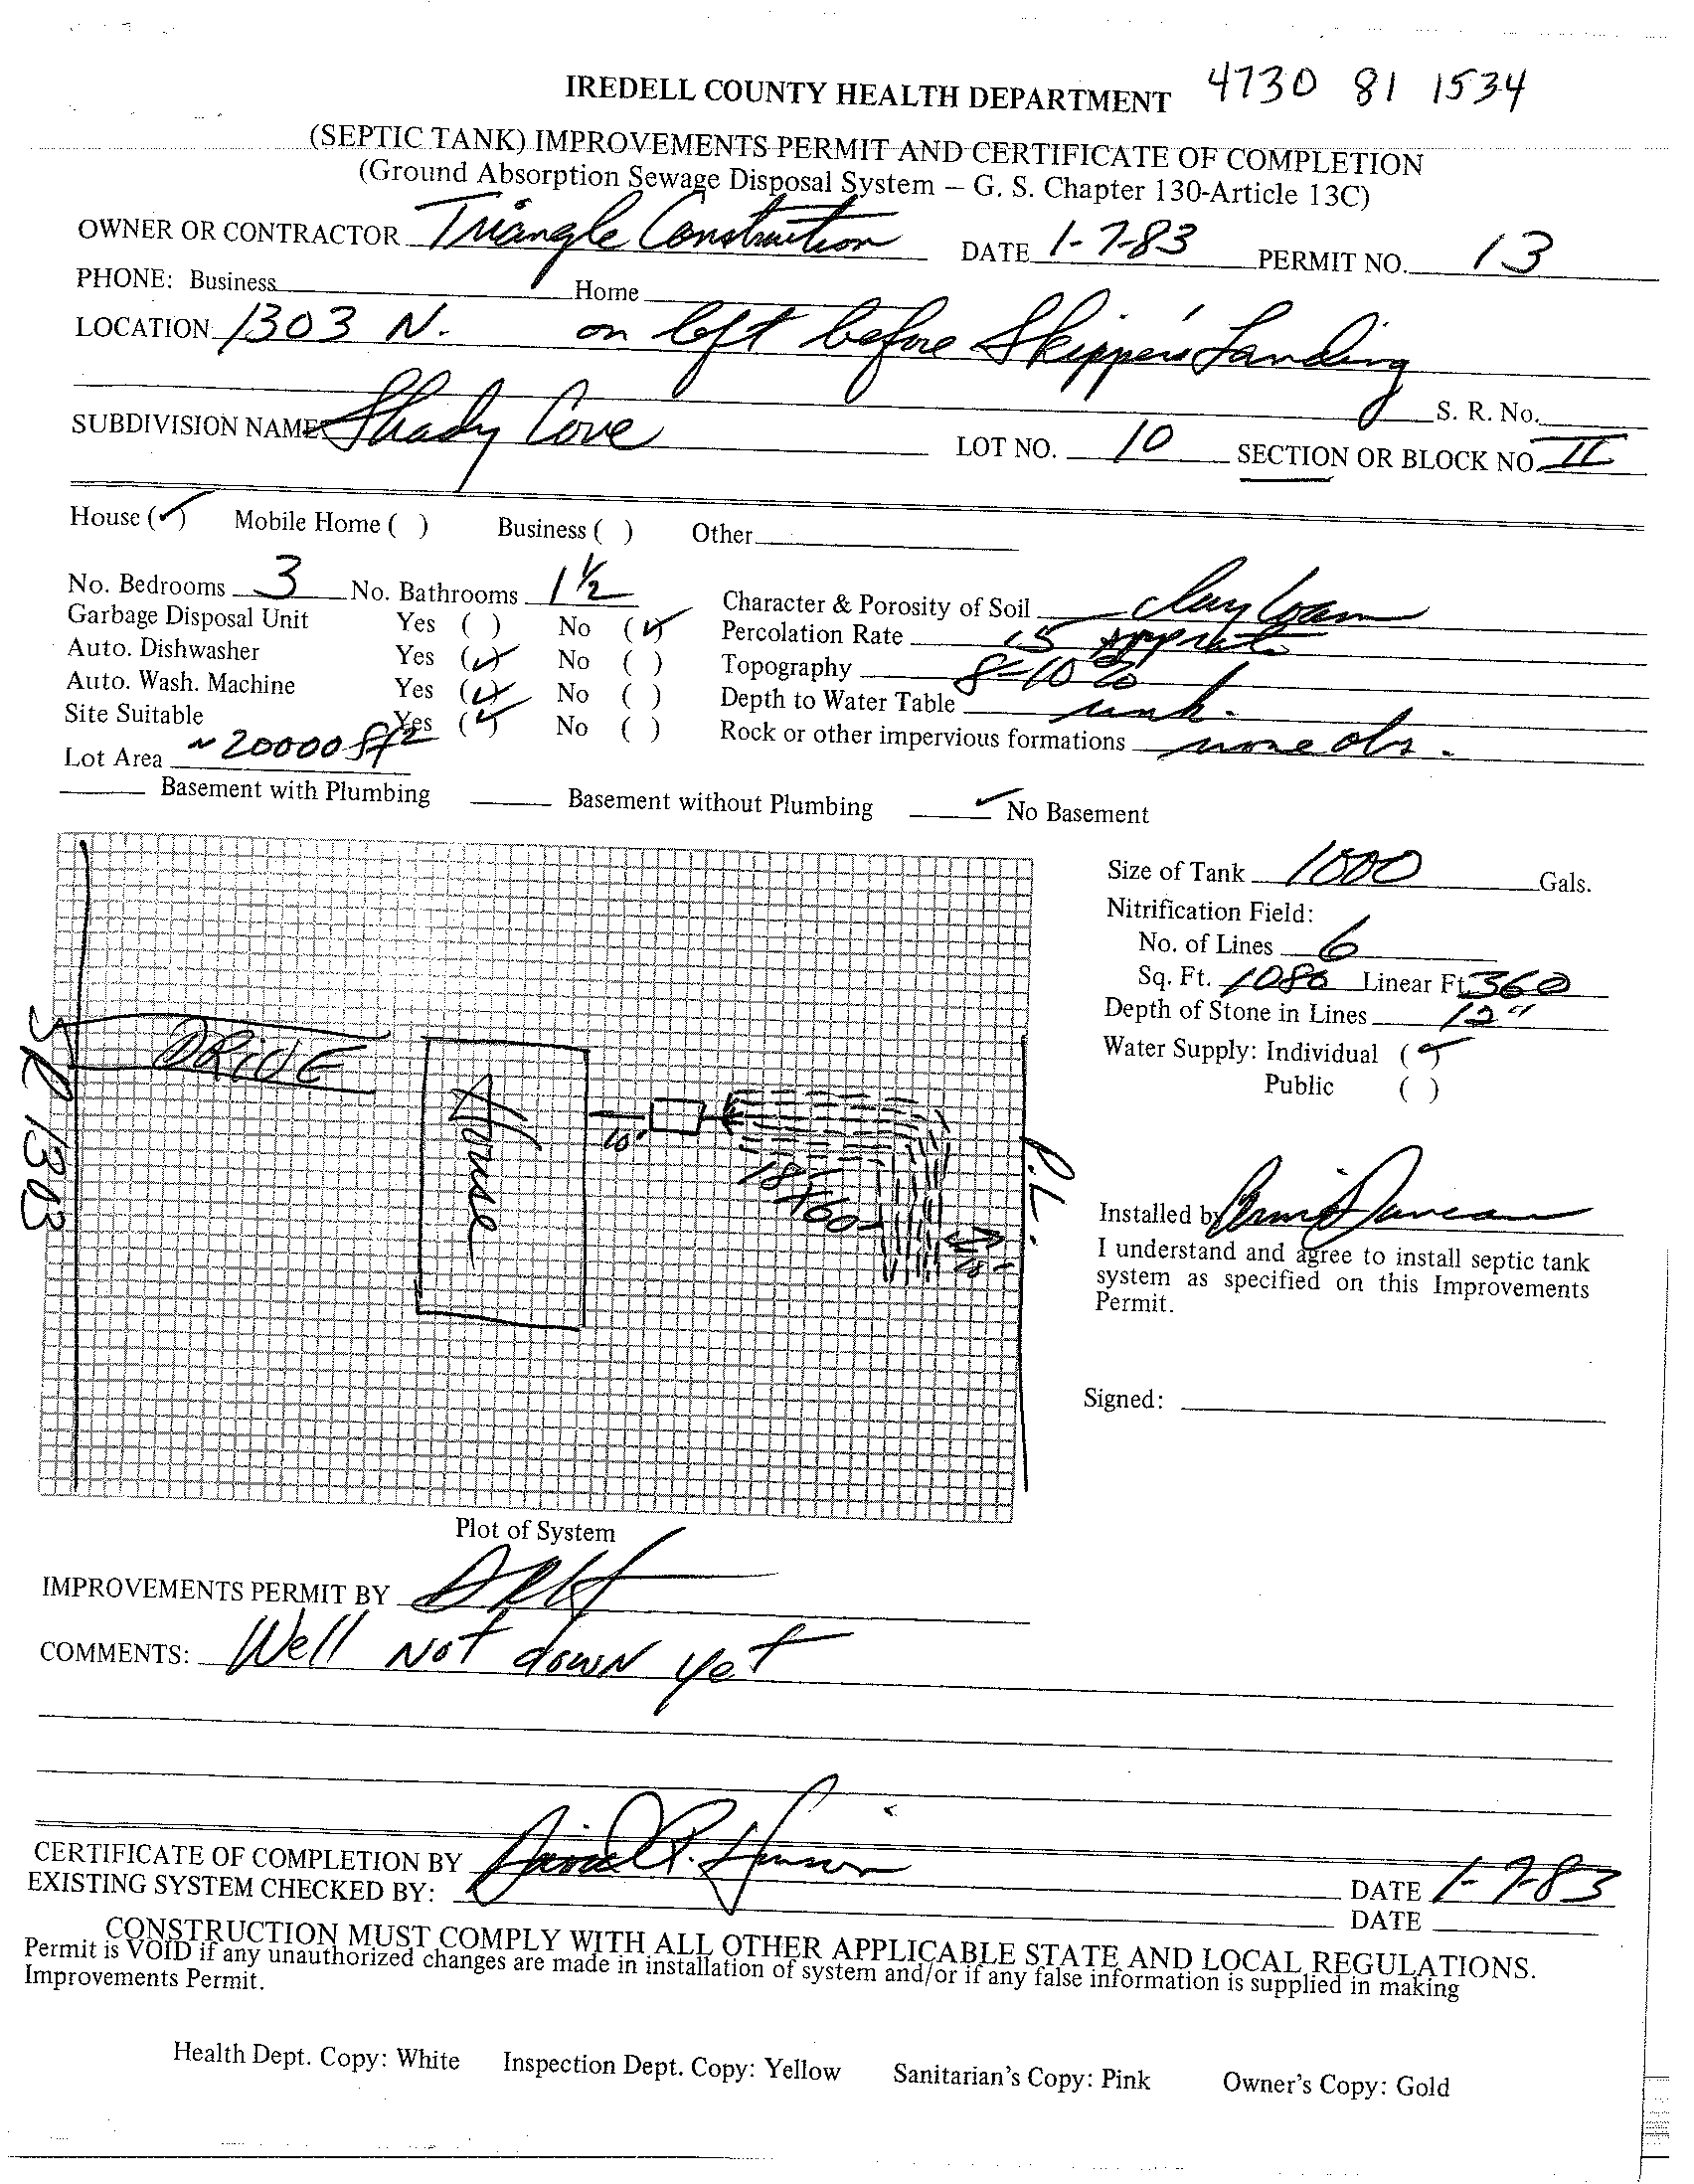 IREDELL COUNTY HEALTH DEPARTMENT 4730 81 1534
(SEPTIC TANK) IMPROVEMENTS PERMIT AND CERTIFICATE OF COMPLETION
(Ground Absorption Sewage Disposal System – G. S. Chapter 130-Article 13C)
OWNER OR CONTRACTOR Triangle Construction DATE 1-7-83 PERMIT NO. 13
PHONE: Business Home
LOCATION 1303 N. on left before Skipper's Landing
S. R. No.
SUBDIVISION NAME Shady Cove LOT NO. 10 SECTION OR BLOCK NO. II
House (✓) Mobile Home ( ) Business ( ) Other
No. Bedrooms 3 No. Bathrooms 1 1/2 Character & Porosity of Soil clay loam
Garbage Disposal Unit Yes ( ) No (✓) Percolation Rate 15
Auto. Dishwasher Yes (✓) No ( ) Topography 8-10%
Auto. Wash. Machine Yes (✓) No ( ) Depth to Water Table unk.
Site Suitable Yes (✓) No ( ) Rock or other impervious formations none obs.
Lot Area ~ 20000 ft2
Basement with Plumbing Basement without Plumbing ✓ No Basement
Size of Tank 1000 Gals.
Nitrification Field:
No. of Lines 6
Sq. Ft. 1080 Linear Ft. 360
Depth of Stone in Lines 12"
Water Supply: Individual (✓)
Public ( )
SR 1303
DRIVE
House
10'
18x60
10'
P.L.
Installed by
I understand and agree to install septic tank
system as specified on this Improvements
Permit.
Signed:
Plot of System
IMPROVEMENTS PERMIT BY DRH
COMMENTS: Well Not down yet
CERTIFICATE OF COMPLETION BY David R. DATE 1-7-83
EXISTING SYSTEM CHECKED BY: DATE
CONSTRUCTION MUST COMPLY WITH ALL OTHER APPLICABLE STATE AND LOCAL REGULATIONS.
Permit is VOID if any unauthorized changes are made in installation of system and/or if any false information is supplied in making
Improvements Permit.
Health Dept. Copy: White Inspection Dept. Copy: Yellow Sanitarian's Copy: Pink Owner's Copy: Gold